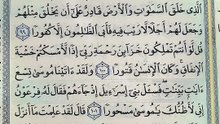 الَّذِى خَلَقَ السَّمَٰوَٰتِ وَالْأَرْضَ قَادِرٌ عَلَىٰٓ أَن يَخْلُقَ مِثْلَهُمْ
وَجَعَلَ لَهُمْ أَجَلًا لَّا رَيْبَ فِيهِ فَأَبَى الظَّٰلِمُونَ إِلَّا كُفُورًا ٩٩
قُل لَّوْ أَنتُمْ تَمْلِكُونَ خَزَآئِنَ رَحْمَةِ رَبِّىٓ إِذًا لَّأَمْسَكْتُمْ خَشْيَةَ
الْإِنفَاقِ وَكَانَ الْإِنسَٰنُ قَتُورًا ١٠٠ وَلَقَدْ ءَاتَيْنَا مُوسَىٰ تِسْعَ
ءَايَٰتٍۭ بَيِّنَٰتٍ فَسْـَٔلْ بَنِىٓ إِسْرَٰٓءِيلَ إِذْ جَآءَهُمْ فَقَالَ لَهُۥ فِرْعَوْنُ
إِنِّى لَأَظُنُّكَ يَٰمُوسَىٰ مَسْحُورًا ١٠١ قَالَ لَقَدْ عَلِمْتَ مَآ أَنزَلَ